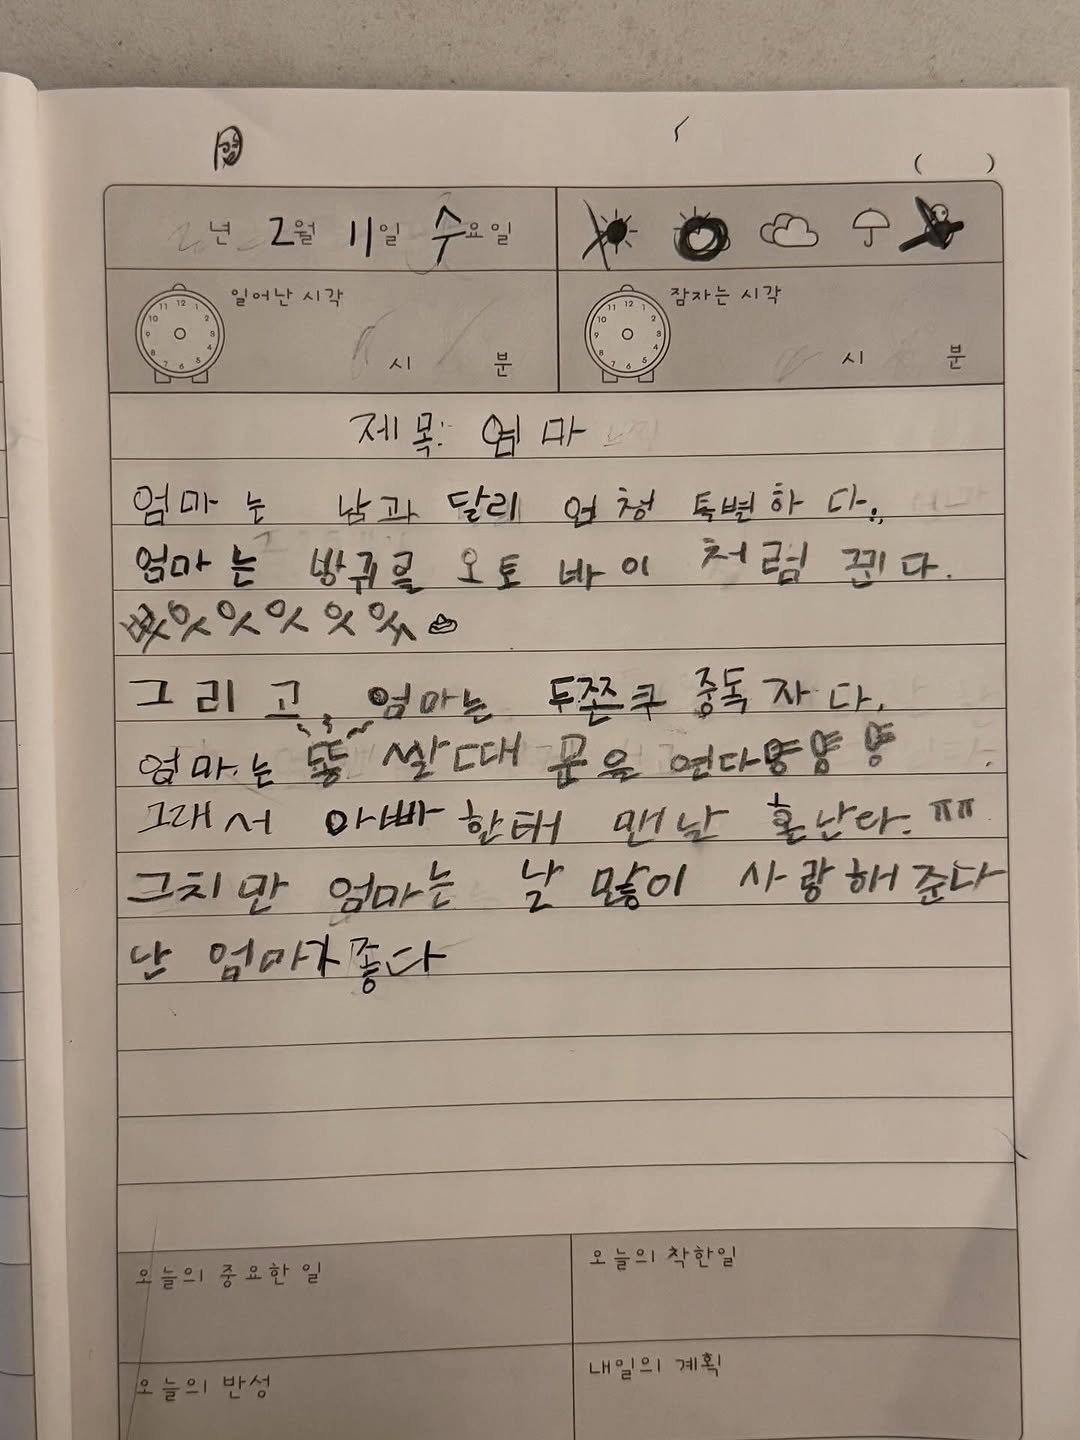 ( )
년 2월 11일 수요일
일어난 시각
시 분
잠자는 시각
시 분
제목: 엄마
엄마는 남과 달리 엄청 특별하다.
엄마는 방귀를 오토바이 처럼 뀐다.
그리고, 엄마는 두쫀쿠 중독자다.
엄마는 똥 쌀때 문을 연다
그래서 아빠한태 맨날 혼난다. ㅠㅠ
그치만 엄마는 날 많이 사랑해준다
난 엄마가좋다
오늘의 중요한 일
오늘의 착한일
오늘의 반성
내일의 계획